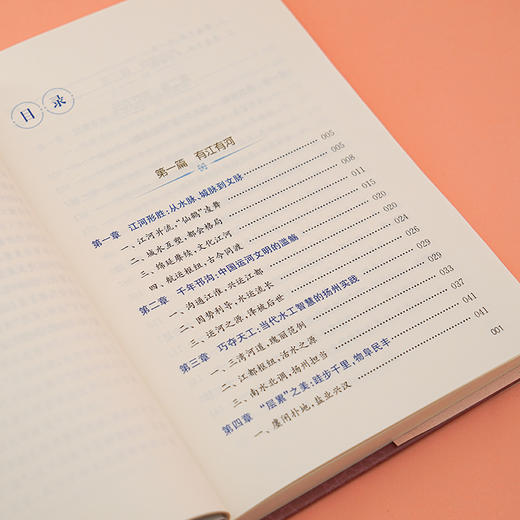 目录
第一篇 有江有河
第一章 江河形胜：从水脉、城脉到文脉 005
一、江河并流，“仙鹤”凌舞 005
二、城水互塑，都会格局 008
三、绵延赓续，文化江河 011
四、航运枢纽，古今问渡 015
第二章 千年邗沟：中国运河文明的滥觞 020
一、沟通江淮，兴运江都 020
二、因势利导，水运流长 024
三、运河之源，泽被后世 026
第三章 巧夺天工：当代水工智慧的扬州实践 029
一、三湾河道，瑰丽范例 029
二、江都枢纽，活水之源 033
三、南水北调，扬州担当 037
第四章 “层累”之美：跬步千里，物阜民丰 041
一、廛闬扑地，盐业兴汉 041
001